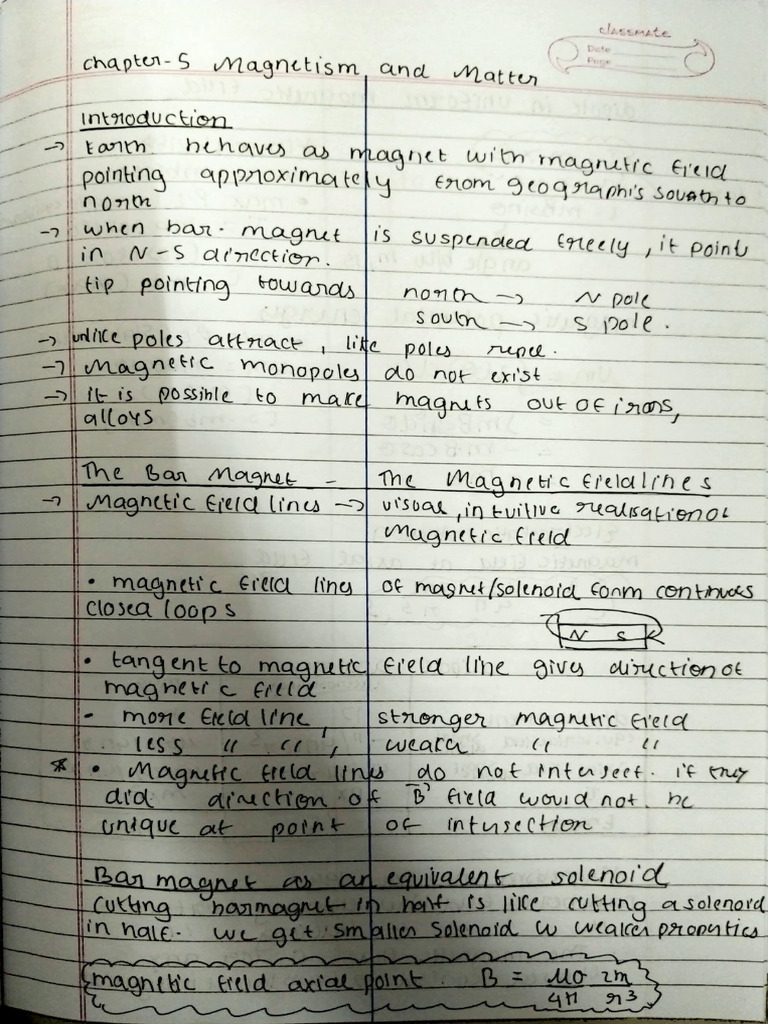 classmate
Date
Page
chapter-5 Magnetism and Matter
Introduction
→ Earth behaves as magnet with magnetic field
pointing approximately from geographis south to
north
→ when bar magnet is suspended freely, it point
in N-S direction.
tip pointing towards north → N pole
south → S pole.
→ unlike poles attract, like poles repel.
→ Magnetic monopoles do not exist
→ it is possible to make magnets out of irons,
alloys
The Bar Magnet - The Magnetic field lines
→ Magnetic field lines → visual, intuitive realisation of
Magnetic field
• magnetic field lines of magnet/solenoid form continuous
closed loops
N S
• tangent to magnetic field line gives direction of
magnetic field
- more field line, stronger magnetic field
less " " , weaker " "
* • Magnetic field lines do not intersect. if they
did direction of B field would not be
unique at point of intersection
Bar magnet as an equivalent solenoid
cutting bar magnet in half is like cutting a solenoid
in half. we get smaller solenoid w weaker properties
magnetic field axial point. B = μ0/4π 2m/r3